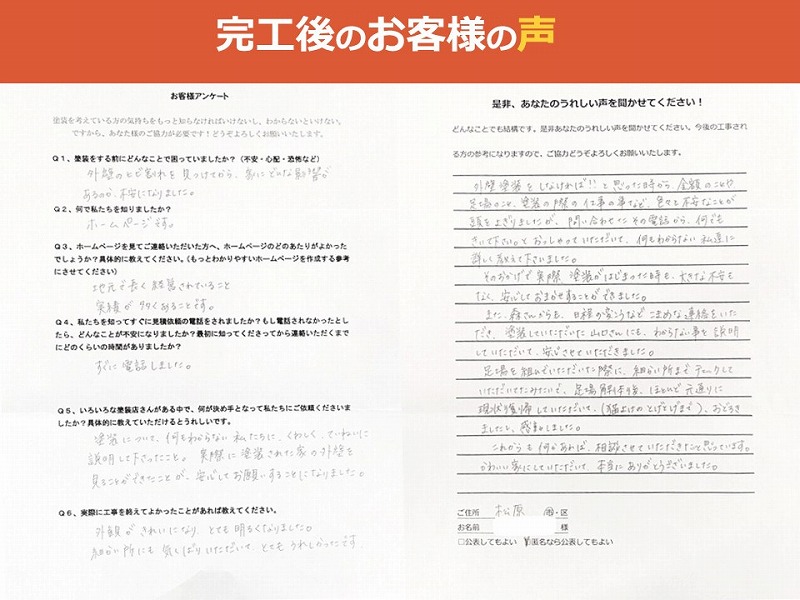 完工後のお客様の声
お客様アンケート
塗装を考えている方の気持ちをもっと知らなければいけないし、わからないといけない。
ですから、あなた様のご協力が必要です！どうぞよろしくお願いいたします。
Q１、塗装をする前にどんなことで困っていましたか？（不安・心配・恐怖など）
外壁のヒビ割れを見つけてから、家にどんな影響が
あるのか、不安になりました。
Q２、何で私たちを知りましたか？
ホームページです。
Q３、ホームページを見てご連絡いただいた方へ、ホームページのどのあたりがよかった
でしょうか？具体的に教えてください。（もっとわかりやすいホームページを作成する参考
にさせてください）
地元で長く経営されていること
実績が多くあることです。
Q４、私たちを知ってすぐに見積依頼の電話をされましたか？もし電話されなかったとし
たら、どんなことが不安になりましたか？最初に知ってくださってから連絡いただくまで
にどのくらいの時間がありましたか？
すぐに電話しました。
Q５、いろいろな塗装店さんがある中で、何が決め手となって私たちにご依頼くださいま
したか？具体的に教えていただけるとうれしいです。
塗装について、何もわからない私たちに、くわしく、ていねいに
説明して下さったこと。実際に塗装された家の外壁を
見ることができたことが、安心してお願いすることになりました。
Q６、実際に工事を終えてよかったことがあれば教えてください。
外観がきれいになり、とても明るくなりました。
細かい所にも気くばりいただいて、とてもうれしかったです
是非、あなたのうれしい声を聞かせてください！
どんなことでも結構です。是非あなたのうれしい声を聞かせてください。今後の工事され
る方の参考になりますので、ご協力どうぞよろしくお願いいたします。
外壁塗装をしなければ!!と思った時から、金額のことや
足場のこと、塗装の際の仕事の事など、色々と不安なことが
頭をよぎりましたが、問い合わせたその電話から、何でも
きいて下さいとおっしゃっていただいて、何もわからない私達に
詳しく教えて下さいました。
そのおかげで実際、塗装がはじまった時も、大きな不安も
なく、安心しておまかせすることができました。
また、森さんからも、日程が変わるなどこまめな連絡をいた
だき、塗装していただいた山口さんにも、わからない事を説明
していただいて、安心させていただきました。
足場を組んでいただいた際に、細かい所までチェックして
いただいてたみたいで、足場解体後、ほとんど元通りに
現状復帰していただいて、（猫よけのとげとげまで）、おどろき
ましたし、感動しました。
これからも何かあれば、相談させていただきたいと思っています。
かわいい家にしていただいて、本当にありがとうございました。
ご住所 松原 市・区
お名前 様
□公表してもよい ☑匿名なら公表してもよい